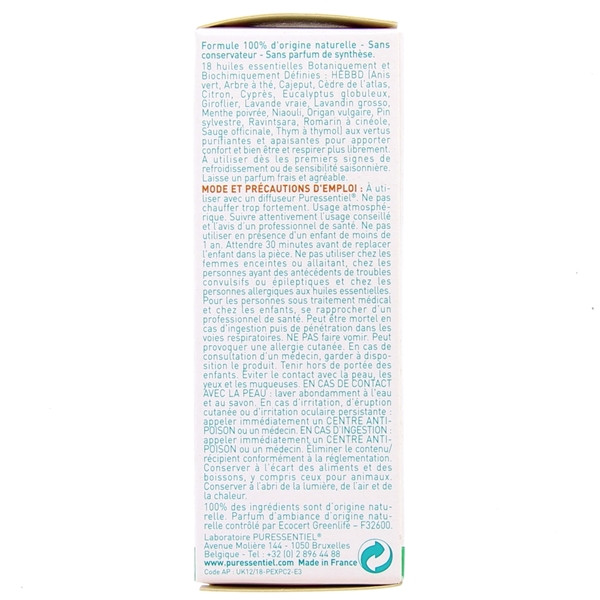 Formule 100% d'origine naturelle - Sans
conservateur - Sans parfum de synthèse.
18 huiles essentielles Botaniquement et
Biochimiquement Définies : HEBBD (Anis
vert, Arbre à thé, Cajeput, Cèdre de l'atlas,
Citron, Cyprès, Eucalyptus globuleux,
Giroflier, Lavande vraie, Lavandin grosso,
Menthe poivrée, Niaouli, Origan vulgaire, Pin
sylvestre, Ravintsara, Romarin à cinéole,
Sauge officinale, Thym à thymol) aux vertus
purifiantes et apaisantes pour apporter
confort et bien être et respirer plus librement.
A utiliser dès les premiers signes de
refroidissement ou de sensibilité saisonnière.
Laisse un parfum frais et agréable.
MODE ET PRÉCAUTIONS D'EMPLOI : À uti-
liser avec un diffuseur Puressentiel®. Ne pas
chauffer trop fortement. Usage atmosphé-
rique. Suivre attentivement l'usage conseillé
et l'avis d'un professionnel de santé. Ne pas
utiliser en présence d'un enfant de moins de
1 an. Attendre 30 minutes avant de replacer
l'enfant dans la pièce. Ne pas utiliser chez les
femmes enceintes ou allaitant, chez les
personnes ayant des antécédents de troubles
convulsifs ou épileptiques et chez les
personnes allergiques aux huiles essentielles.
Pour les personnes sous traitement médical
et chez les enfants, se rapprocher d'un
professionnel de santé. Peut être mortel en
cas d'ingestion puis de pénétration dans les
voies respiratoires. NE PAS faire vomir. Peut
provoquer une allergie cutanée. En cas de
consultation d'un médecin, garder à dispo-
sition le produit. Tenir hors de portée des
enfants. Éviter le contact avec la peau, les
yeux et les muqueuses. EN CAS DE CONTACT
AVEC LA PEAU : laver abondamment à l'eau
et au savon. En cas d'irritation, d'éruption
cutanée ou d'irritation oculaire persistante :
appeler immédiatement un CENTRE ANTI-
POISON ou un médecin. EN CAS D'INGESTION :
appeler immédiatement un CENTRE ANTI-
POISON ou un médecin. Éliminer le contenu/
récipient conformément à la réglementation.
Conserver à l'écart des aliments et des
boissons, y compris ceux pour animaux.
Conserver à l'abri de la lumière, de l'air et de
la chaleur.
100% des ingrédients sont d'origine natu-
relle. Parfum d'ambiance d'origine natu-
relle contrôlé par Ecocert Greenlife - F32600.
Laboratoire PURESSENTIEL®
Avenue Molière 144 - 1050 Bruxelles
Belgique - Tel : +32 (0) 2 896 44 88
www.puressentiel.com Made in France
Code AP : UK12/18-PEXPC2-E3